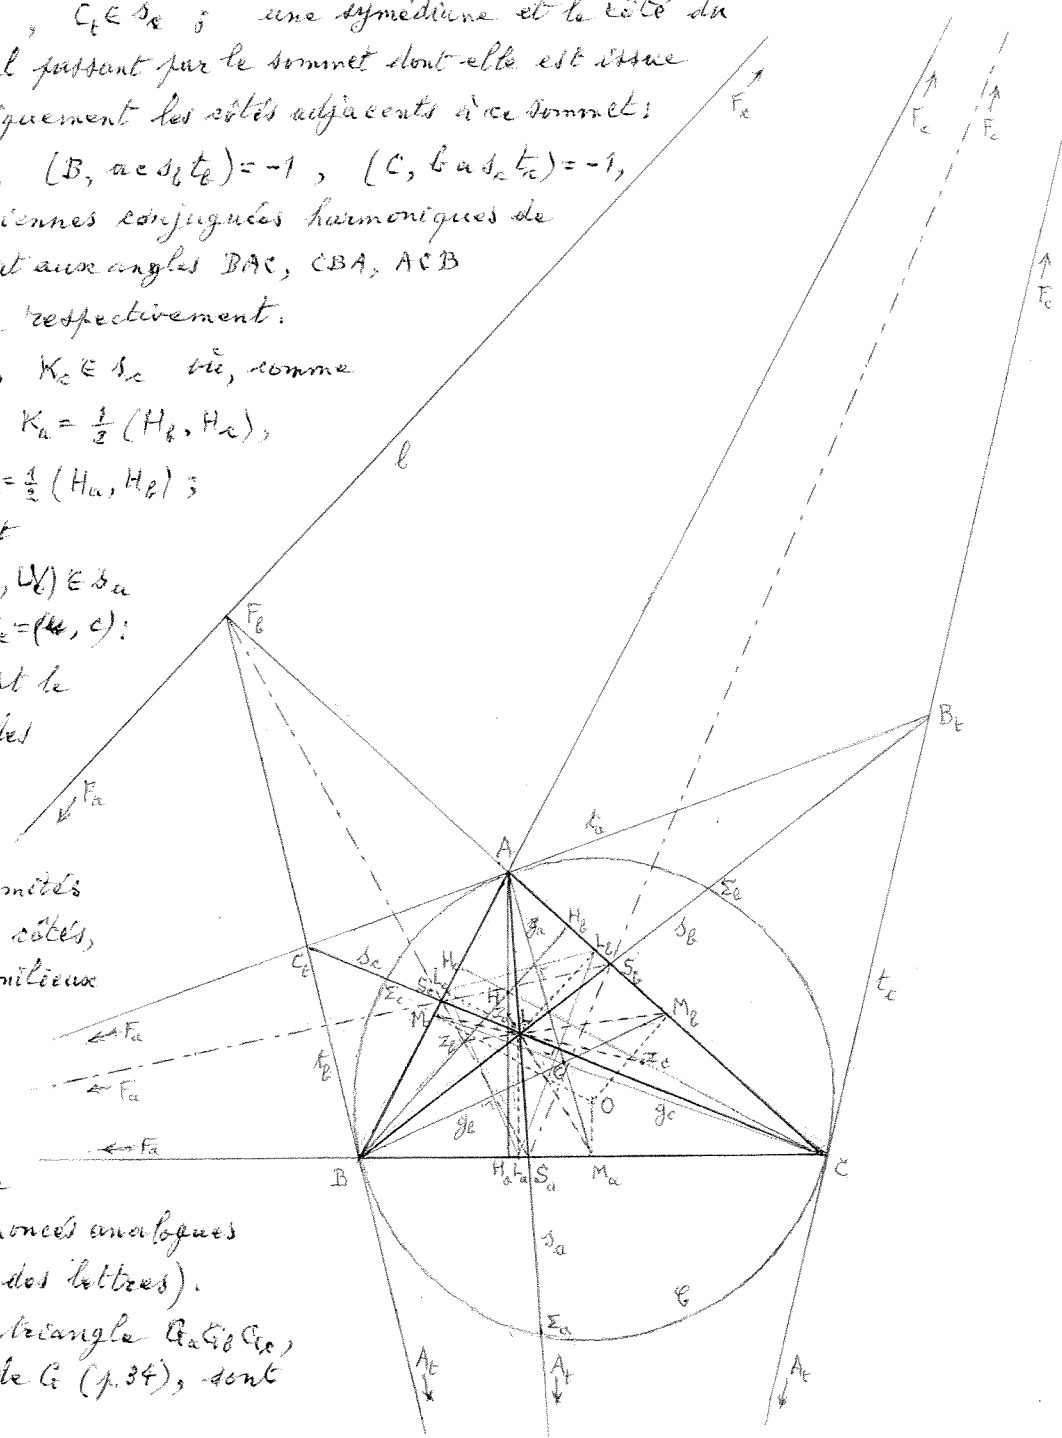 , C_t ∈ s_c ; une symédiane et le côté du
l passant par le sommet dont elle est issue
quement les côtés adjacents à ce sommet:
(B, a c s_b t_b) = -1 , (C, b a s_c t_c) = -1,
iennes conjuguées harmoniques de
nt aux angles BAC, CBA, ACB
respectivement.
, K_c ∈ s_c où, comme
K_a = 1/2 (H_b, H_c),
= 1/2 (H_a, H_b) ;
t
) ∈ s_a
, c):
st le
des
mités
côtés,
milieux
oncés analogues
des lettres).
triangle G_a G_b G_c,
de G (p.34), sont
F_c
F_c
F_c
F_c
l
F_b
F_a
B_t
t_a
A
Σ_b
s_b
H_b
g_a
L_b
S_b
C_t
s_c
Σ_c
S_c
H
M_b
t_c
F_a
F_a
F_a
t_b
Z_b
Z_c
G
O
g_b
g_c
B
H_a
L_a
S_a
M_a
C
s_a
Σ_a
A_t
A_t
A_t